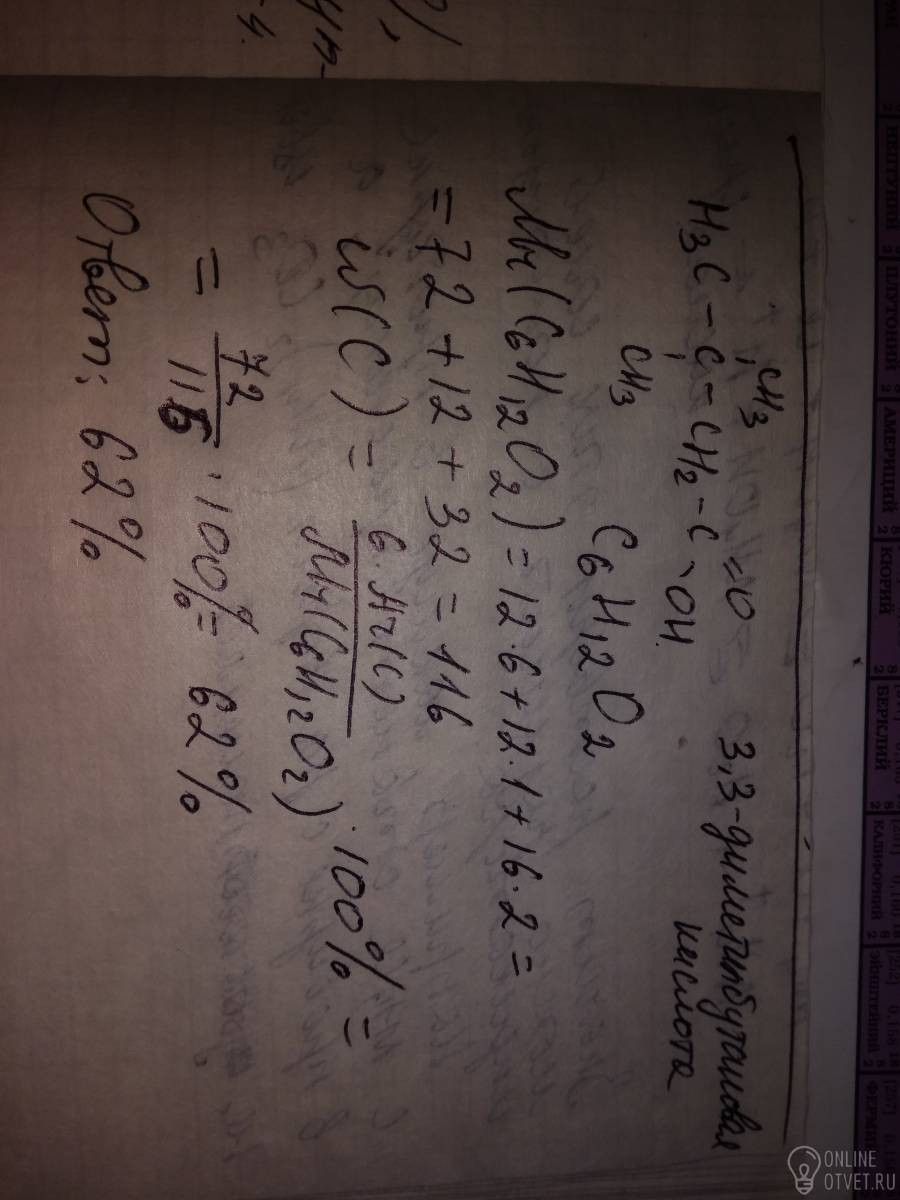 CH3
H3C-C-CH2-C=O
-OH
CH3
3,3-диметилбутановая
кислота
C6H12O2
Mr(C6H12O2)=12·6+12·1+16·2=
=72+12+32=116
w(C)= 6·Ar(C) / Mr(C6H12O2) ·100%=
= 72/116 ·100%= 62%
Ответ: 62%
НЕПТУНИЙ
ПЛУТОНИЙ
АМЕРИЦИЙ
КЮРИЙ
БЕРКЛИЙ
КАЛИФОРНИЙ
ЭЙНШТЕЙНИЙ
ONLINE
OTVET.RU